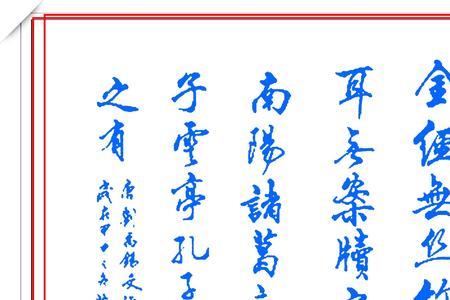 金經無丝
耳无案牘
南陽諸葛
子雲亭孔子
之有
唐劉禹錫文
歲在甲